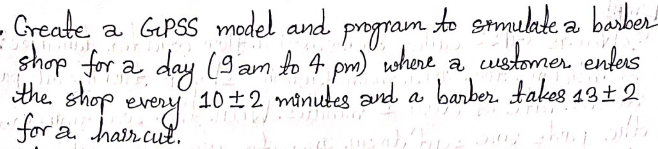 . Create a GPSS model and program to simulate a barber
shop for a day (9am to 4 pm) where a customer enters
the shop every 10±2 minutes and a barber takes 13±2
for a haircut.